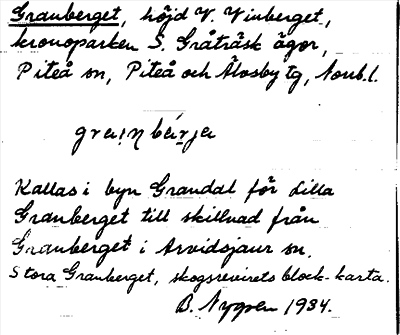 Granberget, höjd V. Vinberget,
kronoparken S. Gråträsk ägor,
Piteå sn, Piteå och Älvsby tg, Norrb.l.
Kallas i byn Grandal för Lilla
Granberget till skillnad från
Granberget i Arvidsjaur sn.
Stora Granberget, skogsrevirets block-karta.
B. Nygren 1934.